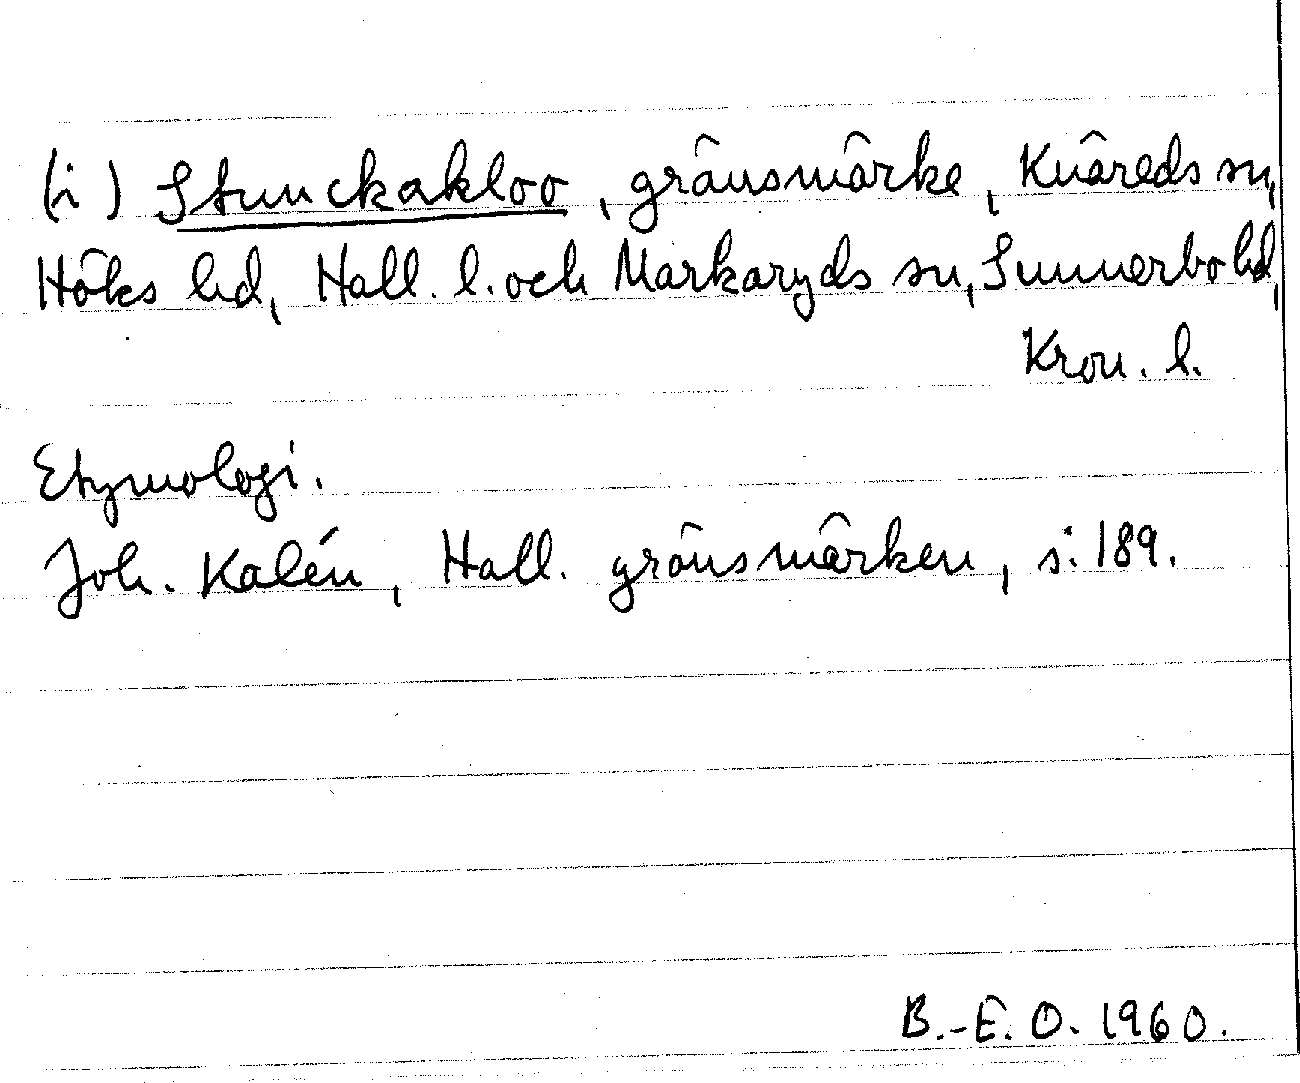 (i) Stunckakloo, gränsmärke, Knäreds sn,
Höks hd, Hall. l. och Markaryds sn, Sunnerbo hd,
Kron. l.
Etymologi.
Joh. Kalén, Hall. gränsmärken, s. 189.
B.-E. O. 1960.